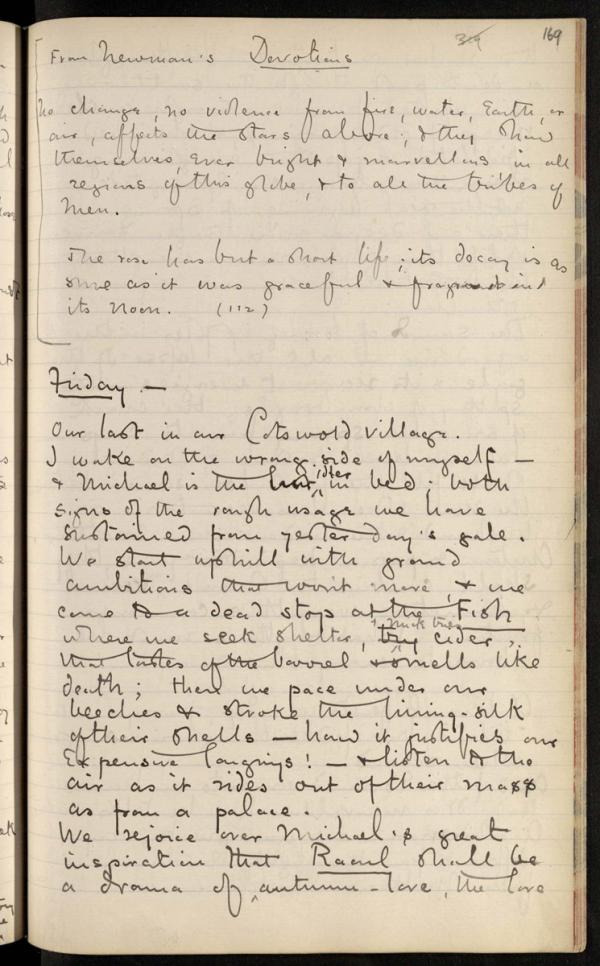 319 169
From Newman's Devotions
No change, no violence from fire, water, Earth, or
air, affects the stars above; & they show
themselves, ever bright & marvellous in all
regions of this globe, & to all the tribes of
Men.
The rose has but a short life; its decay is as
sure as it was graceful & fragrant in
its noon. (112)
Friday —
Our last in our Cotswold village.
I wake on the wrong side of myself —
& Michael is the later in bed; both
signs of the rough usage we have
sustained from yesterday's gale.
We start uphill with grand
ambitions that won't move, & we
come to a dead stop at the Fish
where we seek shelter, & Mick tries cider,
that tastes of the barrel & smells like
death; then we pace under our
beeches & stroke the lining-silk
of their shells — how it justifies our
Expensive longings! — & listen to the
air as it rides out of their mass
as from a palace.
We rejoice over Michael's great
inspiration that Raoul shall be
a drama of autumn-love, the love